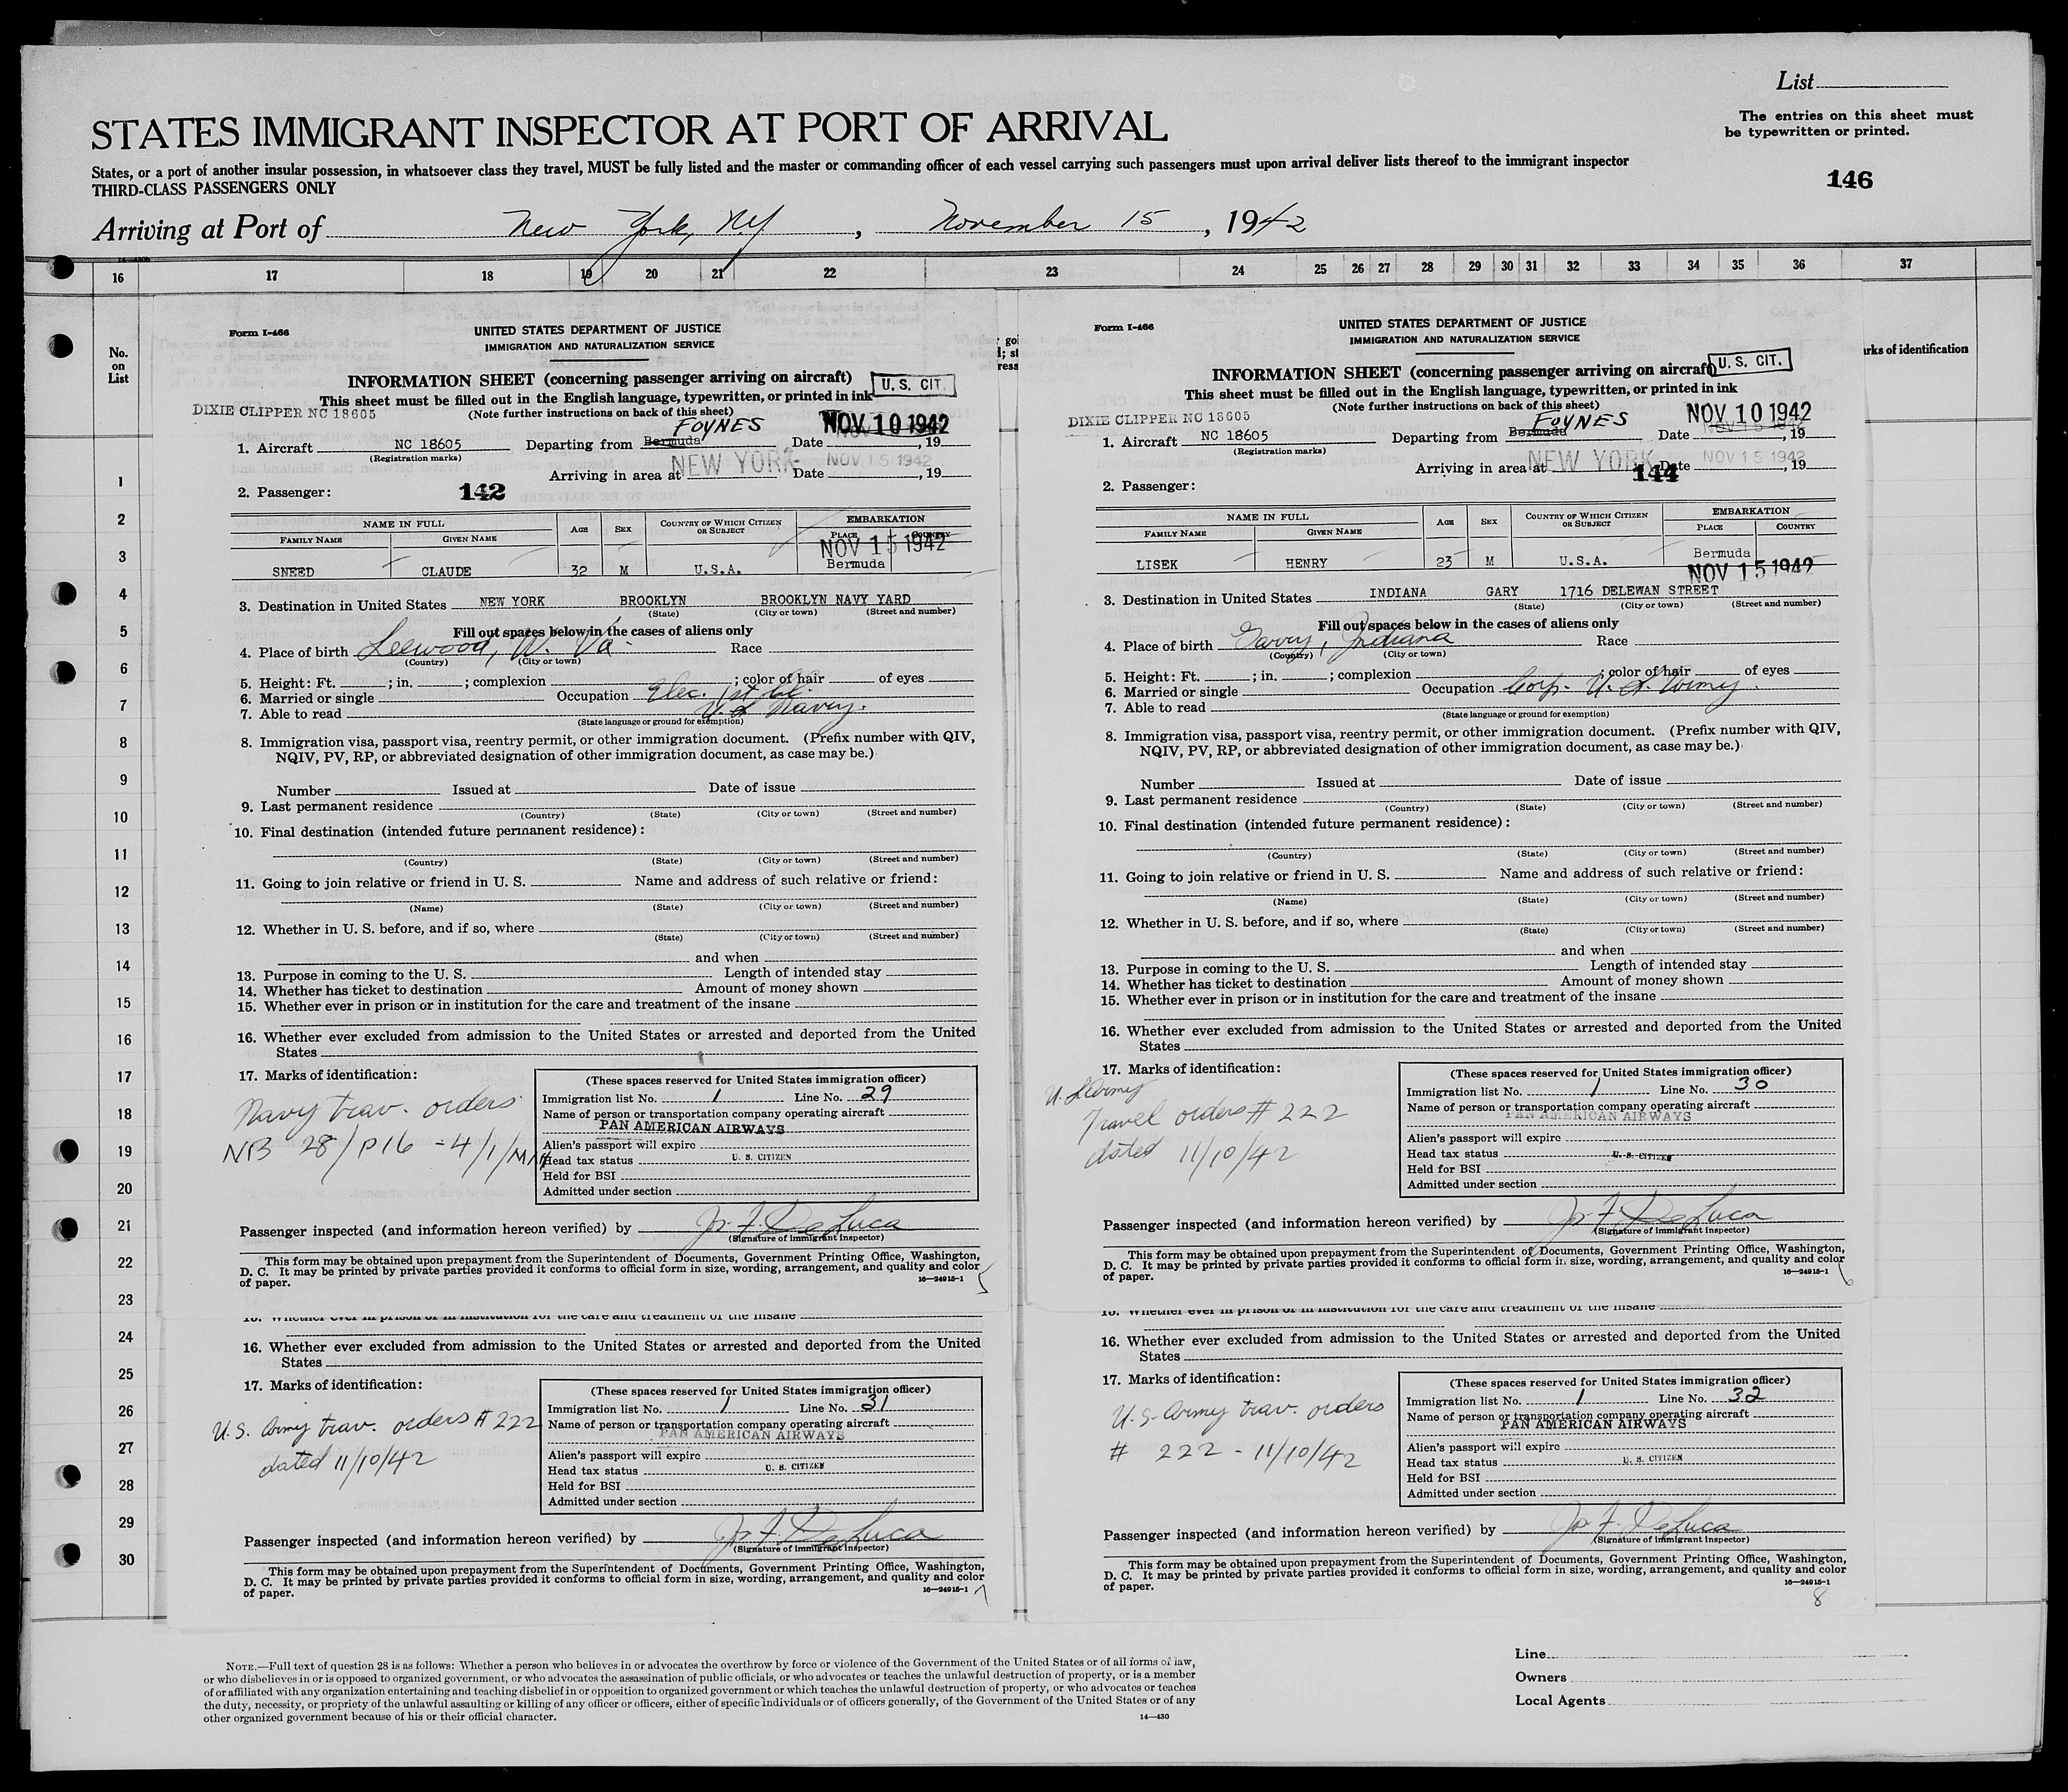 List
The entries on this sheet must
be typewritten or printed.
STATES IMMIGRANT INSPECTOR AT PORT OF ARRIVAL
States, or a port of another insular possession, in whatsoever class they travel, MUST be fully listed and the master or commanding officer of each vessel carrying such passengers must upon arrival deliver lists thereof to the immigrant inspector
THIRD-CLASS PASSENGERS ONLY
146
Arriving at Port of New York, NY, November 15, 1942
16 17 18 19 20 21 22 23 24 25 26 27 28 29 30 31 32 33 34 35 36 37
No.
on
List
1
2
3
4
5
6
7
8
9
10
11
12
13
14
15
16
17
18
19
20
21
22
23
24
25
26
27
28
29
30
Form I-466
UNITED STATES DEPARTMENT OF JUSTICE
IMMIGRATION AND NATURALIZATION SERVICE
INFORMATION SHEET (concerning passenger arriving on aircraft)
U. S. CIT.
This sheet must be filled out in the English language, typewritten, or printed in ink
DIXIE CLIPPER NC 18605
(Note further instructions on back of this sheet)
FOYNES
NOV 10 1942
1. Aircraft NC 18605 Departing from Bermuda Date , 19
(Registration marks)
Arriving in area at NEW YORK Date NOV 15 1942 , 19
2. Passenger: 142
NAME IN FULL AGE SEX COUNTRY OF WHICH CITIZEN OR SUBJECT EMBARKATION
FAMILY NAME GIVEN NAME PLACE COUNTRY
NOV 15 1942
SNEED CLAUDE 32 M U.S.A. Bermuda
3. Destination in United States NEW YORK BROOKLYN BROOKLYN NAVY YARD
(State) (City or town) (Street and number)
Fill out spaces below in the cases of aliens only
4. Place of birth Leewood, W. Va. Race
(Country) (City or town)
5. Height: Ft. ; in. ; complexion ; color of hair of eyes
6. Married or single Occupation Elec. 1st Cl.
U S Navy.
7. Able to read
(State language or ground for exemption)
8. Immigration visa, passport visa, reentry permit, or other immigration document. (Prefix number with QIV,
NQIV, PV, RP, or abbreviated designation of other immigration document, as case may be.)
Number Issued at Date of issue
9. Last permanent residence
(Country) (State) (City or town) (Street and number)
10. Final destination (intended future permanent residence):
(Country) (State) (City or town) (Street and number)
11. Going to join relative or friend in U. S. Name and address of such relative or friend:
(Name) (State) (City or town) (Street and number)
12. Whether in U. S. before, and if so, where
(State) (City or town) (Street and number)
and when
13. Purpose in coming to the U. S. Length of intended stay
14. Whether has ticket to destination Amount of money shown
15. Whether ever in prison or in institution for the care and treatment of the insane
16. Whether ever excluded from admission to the United States or arrested and deported from the United
States
17. Marks of identification:
Navy trav. orders
NB 28/P16 - 4/1/
(These spaces reserved for United States immigration officer)
Immigration list No. 1 Line No. 29
Name of person or transportation company operating aircraft
PAN AMERICAN AIRWAYS
Alien's passport will expire
Head tax status U. S. CITIZEN
Held for BSI
Admitted under section
Passenger inspected (and information hereon verified) by Jos. F. DeLuca
(Signature of immigrant inspector)
This form may be obtained upon prepayment from the Superintendent of Documents, Government Printing Office, Washington,
D. C. It may be printed by private parties provided it conforms to official form in size, wording, arrangement, and quality and color
of paper. 16—24915-1
5
Form I-466
UNITED STATES DEPARTMENT OF JUSTICE
IMMIGRATION AND NATURALIZATION SERVICE
INFORMATION SHEET (concerning passenger arriving on aircraft)
U. S. CIT.
This sheet must be filled out in the English language, typewritten, or printed in ink
DIXIE CLIPPER NC 18605
(Note further instructions on back of this sheet)
FOYNES
NOV 10 1942
1. Aircraft NC 18605 Departing from Bermuda Date NOV 15 1942 , 19
(Registration marks)
Arriving in area at NEW YORK Date NOV 15 1942 , 19
2. Passenger: 144
NAME IN FULL AGE SEX COUNTRY OF WHICH CITIZEN OR SUBJECT EMBARKATION
FAMILY NAME GIVEN NAME PLACE COUNTRY
LISEK HENRY 23 M U.S.A. Bermuda
NOV 15 1942
3. Destination in United States INDIANA GARY 1716 DELEWAN STREET
(State) (City or town) (Street and number)
Fill out spaces below in the cases of aliens only
4. Place of birth Gary, Indiana Race
(Country) (City or town)
5. Height: Ft. ; in. ; complexion ; color of hair of eyes
6. Married or single Occupation Corp. U. S. Army.
7. Able to read
(State language or ground for exemption)
8. Immigration visa, passport visa, reentry permit, or other immigration document. (Prefix number with QIV,
NQIV, PV, RP, or abbreviated designation of other immigration document, as case may be.)
Number Issued at Date of issue
9. Last permanent residence
(Country) (State) (City or town) (Street and number)
10. Final destination (intended future permanent residence):
(Country) (State) (City or town) (Street and number)
11. Going to join relative or friend in U. S. Name and address of such relative or friend:
(Name) (State) (City or town) (Street and number)
12. Whether in U. S. before, and if so, where
(State) (City or town) (Street and number)
and when
13. Purpose in coming to the U. S. Length of intended stay
14. Whether has ticket to destination Amount of money shown
15. Whether ever in prison or in institution for the care and treatment of the insane
16. Whether ever excluded from admission to the United States or arrested and deported from the United
States
17. Marks of identification:
U. S Army
Travel orders # 222
dated 11/10/42
(These spaces reserved for United States immigration officer)
Immigration list No. 1 Line No. 30
Name of person or transportation company operating aircraft
PAN AMERICAN AIRWAYS
Alien's passport will expire
Head tax status U. S. CITIZEN
Held for BSI
Admitted under section
Passenger inspected (and information hereon verified) by Jos. F. DeLuca
(Signature of immigrant inspector)
This form may be obtained upon prepayment from the Superintendent of Documents, Government Printing Office, Washington,
D. C. It may be printed by private parties provided it conforms to official form in size, wording, arrangement, and quality and color
of paper. 16—24915-1
6
rks of identification
15. Whether ever in prison or in institution for the care and treatment of the insane
16. Whether ever excluded from admission to the United States or arrested and deported from the United
States
17. Marks of identification:
U. S. Army trav. orders # 222
dated 11/10/42
(These spaces reserved for United States immigration officer)
Immigration list No. 1 Line No. 31
Name of person or transportation company operating aircraft
PAN AMERICAN AIRWAYS
Alien's passport will expire
Head tax status U. S. CITIZEN
Held for BSI
Admitted under section
Passenger inspected (and information hereon verified) by Jos. F. DeLuca
(Signature of immigrant inspector)
This form may be obtained upon prepayment from the Superintendent of Documents, Government Printing Office, Washington,
D. C. It may be printed by private parties provided it conforms to official form in size, wording, arrangement, and quality and color
of paper. 16—24915-1
7
15. Whether ever in prison or in institution for the care and treatment of the insane
16. Whether ever excluded from admission to the United States or arrested and deported from the United
States
17. Marks of identification:
U. S. Army trav. orders
# 222 - 11/10/42
(These spaces reserved for United States immigration officer)
Immigration list No. 1 Line No. 32
Name of person or transportation company operating aircraft
PAN AMERICAN AIRWAYS
Alien's passport will expire
Head tax status U. S. CITIZEN
Held for BSI
Admitted under section
Passenger inspected (and information hereon verified) by Jos. F. DeLuca
(Signature of immigrant inspector)
This form may be obtained upon prepayment from the Superintendent of Documents, Government Printing Office, Washington,
D. C. It may be printed by private parties provided it conforms to official form in size, wording, arrangement, and quality and color
of paper. 16—24915-1
8
NOTE.—Full text of question 28 is as follows: Whether a person who believes in or advocates the overthrow by force or violence of the Government of the United States or of all forms of law,
or who disbelieves in or is opposed to organized government, or who advocates the assassination of public officials, or who advocates or teaches the unlawful destruction of property, or is a member
of or affiliated with any organization entertaining and teaching disbelief in or opposition to organized government or which teaches the unlawful destruction of property, or who advocates or teaches
the duty, necessity, or propriety of the unlawful assaulting or killing of any officer or officers, either of specific individuals or of officers generally, of the Government of the United States or of any
other organized government because of his or their official character. 14—430
Line
Owners
Local Agents